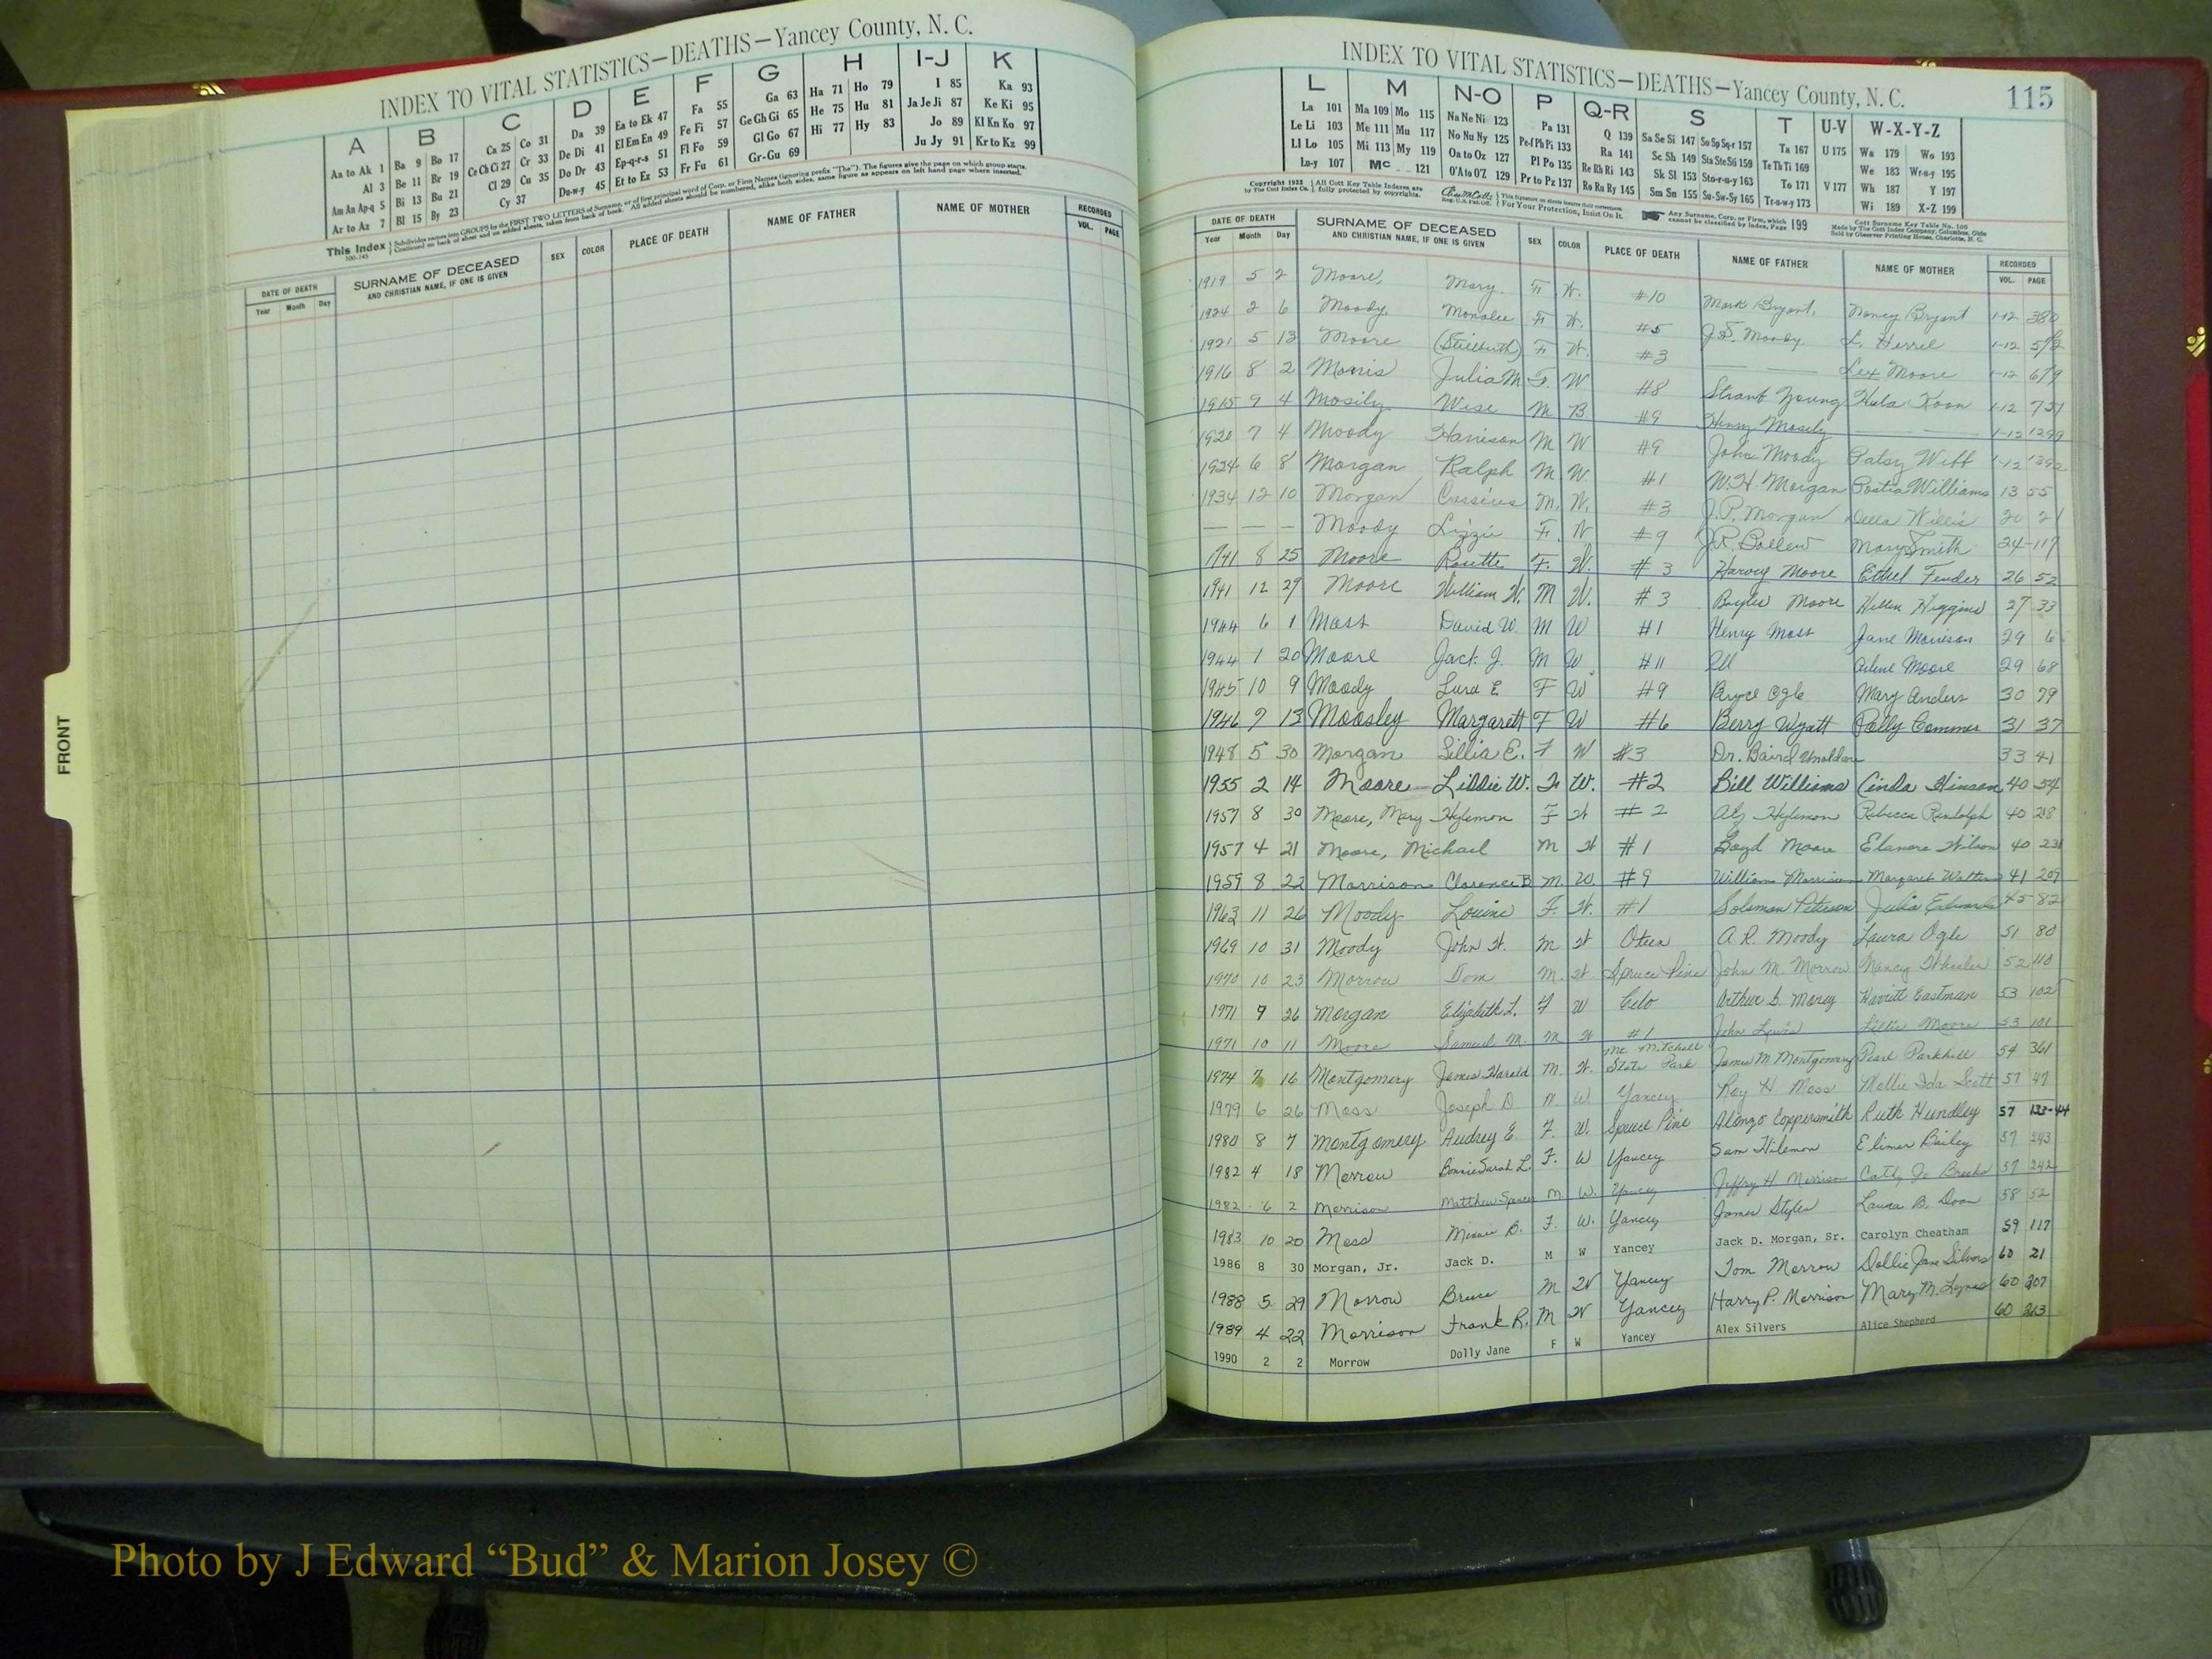 INDEX TO VITAL STATISTICS—DEATHS—Yancey County, N. C.
A B C D E F G H I-J K
Aa to Ak 1 Ba 9 Bo 17 Ca 25 Co 31 Da 39 Ea to Ek 47 Fa 55 Ga 63 Ha 71 Ho 79 I 85 Ka 93
Al 3 Be 11 Br 19 Ce Ch Ci 27 Cr 33 De Di 41 El Em En 49 Fe Fi 57 Ge Gh Gi 65 He 75 Hu 81 Ja Je Ji 87 Ke Ki 95
Am An Ap-q 5 Bi 13 Bu 21 Cl 29 Cu 35 Do Dr 43 Ep-q-r-s 51 Fl Fo 59 Gl Go 67 Hi 77 Hy 83 Jo 89 Kl Kn Ko 97
Ar to Az 7 Bl 15 By 23 Cy 37 Du-w-y 45 Et to Ez 53 Fr Fu 61 Gr-Gu 69 Ju Jy 91 Kr to Kz 99
This Index
Subdivides names into GROUPS by the FIRST TWO LETTERS of Surname, or of first principal word of Corp. or Firm Names (ignoring prefix "The"). The figures give the page on which group starts.
Continued on back of sheet and on added sheets, taken from back of book. All added sheets should be numbered, alike both sides, same figure as appears on left hand page where inserted.
DATE OF DEATH
Year Month Day
SURNAME OF DECEASED
AND CHRISTIAN NAME, IF ONE IS GIVEN
SEX COLOR PLACE OF DEATH NAME OF FATHER NAME OF MOTHER
RECORDED
VOL. PAGE
FRONT
INDEX TO VITAL STATISTICS—DEATHS—Yancey County, N. C. 115
L M N-O P Q-R S T U-V W-X-Y-Z
La 101 Ma 109 Mo 115 Na Ne Ni 123 Pa 131 Q 139 Sa Se Si 147 So Sp Sq-r 157 Ta 167 U 175 Wa 179 Wo 193
Le Li 103 Me 111 Mu 117 No Nu Ny 125 Pe-f Ph Pi 133 Ra 141 Sc Sh 149 Sta Ste Sti 159 Te Th Ti 169 We 183 Wr-u-y 195
Ll Lo 105 Mi 113 My 119 Oa to Oz 127 Pl Po 135 Re Rh Ri 143 Sk Sl 153 Sto-r-u-y 163 To 171 V 177 Wh 187 Y 197
Lu-y 107 Mc 121 O'A to O'Z 129 Pr to Pz 137 Ro Ru Ry 145 Sm Sn 155 Su-Sw-Sy 165 Tr-u-w-y 173 Wi 189 X-Z 199
All Cott Key Table Indexes are fully protected by copyrights.
For Your Protection, Insist On It.
Any Surname, Corp. or Firm, which cannot be classified by Index, Page 199
DATE OF DEATH
Year Month Day
SURNAME OF DECEASED
AND CHRISTIAN NAME, IF ONE IS GIVEN
SEX COLOR PLACE OF DEATH NAME OF FATHER NAME OF MOTHER
RECORDED
VOL. PAGE
1919 5 2 Moore, Mary F W. #10 Mark Bryant, Nancy Bryant 1-12 380
1924 2 6 Moody, Monalee F W. #5 J.S. Moody L. Herrel 1-12
1921 5 13 Moore (Stillbirth) F W. #3 Lex Moore 1-12 679
1916 8 2 Morris Julia M F. W #8 Young 1-12 751
1915 9 4 Mosily Wise M B #9 Henry Mosily 1-12 1299
1920 7 4 Moody Harrison M W #9 John Moody Patsy Webb 1-12 1392
1924 6 8 Morgan Ralph M W #1 W.H. Morgan Williams 13 55
1934 12 10 Morgan Cassius M. W. #3 J.P. Morgan Della Willis 20 21
— — — Moody Lizzie F. W #9 J.R. Ballew Mary Smith 24-117
1941 8 25 Moore F. W. #3 Harvey Moore Ethel Fender 26 52
1941 12 29 Moore William W. M W. #3 Moore Higgins 27 33
1944 6 1 Moss David W. M W #1 Henry Moss Jane Morrison 29 6
1944 1 20 Moore Jack J. M W #11 Ill Arlene Moore 29 68
1945 10 9 Moody Lura E F W #9 Ogle Mary Anders 30 79
1946 7 13 Moosley Margarett F W #6 Berry Wyatt Polly 31 37
1948 5 30 Morgan Lillia E. F W #3 Dr. Baird 33 41
1955 2 14 Moore Lissie W. F W. #2 Bill Williams Cinda Hinson 40 54
1957 8 30 Moore, Mary Hylemon F W #2 Hylemon Rebecca Randolph 40 218
1957 4 21 Moore, Michael M W #1 Boyd Moore Elanore Wilson 40 231
1959 8 22 Morrison Clarence B M. W. #9 William Morrison Margaret 41 209
1963 11 26 Moody Louine F. W. #1 Soloman Peterson Julia Edwards 45 82
1969 10 31 Moody John W. M W Oteen A R. Moody Laura Ogle 51 80
1970 10 23 Morrow Tom M. W. Spruce Pine John M. Morrow Nancy Wheeler 52 110
1971 9 26 Morgan Elizabeth L. F W Celo Arthur S. Harriett Eastman 53 102
1971 10 11 Moore Samuel M. M W #1 John Lewis Lillie Moore 53 101
1974 7 16 Montgomery James Harold M. W. Mt Mitchell State Park James M Montgomery Pearl Parkhill 54 361
1979 6 26 Moss Joseph D M. W Yancey Roy H Moss Mollie Ida Scott 57 47
1980 8 7 Montgomery Audrey E F. W. Spruce Pine Alonzo Coppersmith Ruth Hundley 57 133-44
1982 4 18 Morrow Bonnie Sarah L. F. W Yancey Sam Hilemon Bailey 57 243
1982 6 2 Morrison Matthew Spencer M W. Yancey Jeffry H Morrison Cathy Jo Brooks 57 242
1983 10 20 Moss Minnie B. F. W. Yancey James Styles Laura B. 58 52
1986 8 30 Morgan, Jr. Jack D. M W Yancey Jack D. Morgan, Sr. Carolyn Cheatham 59 117
1988 5 29 Morrow Bruce M W Yancey Tom Morrow Dollie Jane Silvers 60 21
1989 4 22 Morrison Frank R. M W Yancey Harry P. Morrison Mary M. 60 207
1990 2 2 Morrow Dolly Jane F W Yancey Alex Silvers Alice Shepherd 60 263
Photo by J Edward “Bud” & Marion Josey ©